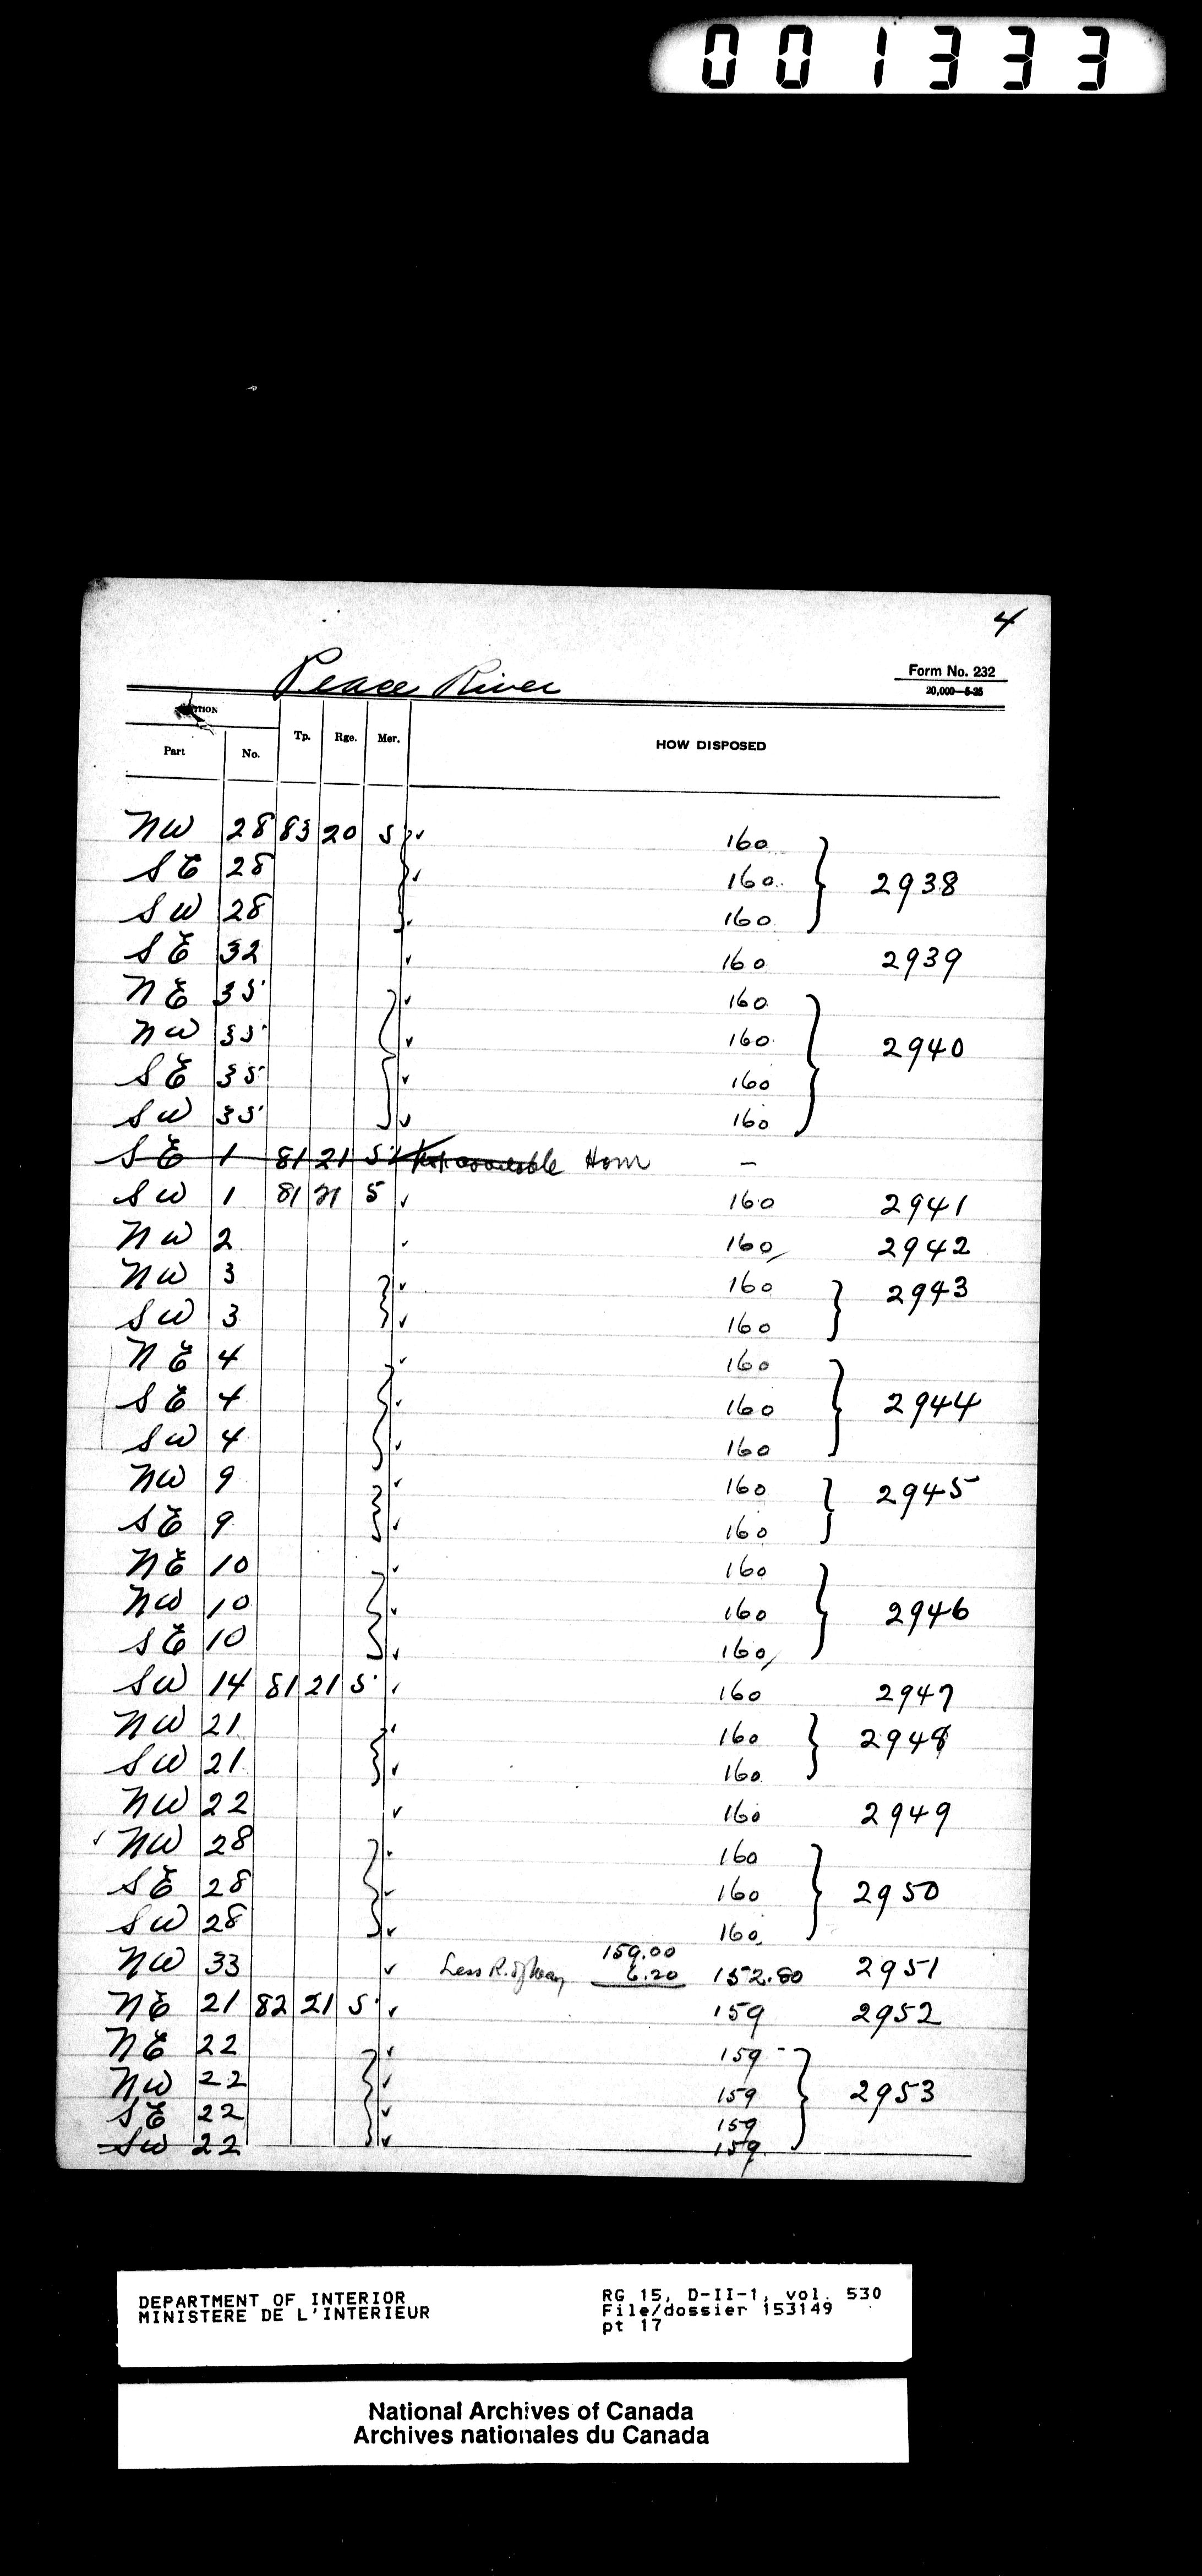 001333
4
Peace River
Form No. 232
20,000—5-25
Part No. Tp. Rge. Mer. HOW DISPOSED
NW 28 83 20 5 160
SE 28 160 2938
SW 28 160
SE 32 160 2939
NE 35 160
NW 35 160 2940
SE 35 160
SW 35 160
SE 1 81 21 5 Not available Hom —
SW 1 81 21 5 160 2941
NW 2 160 2942
NW 3 160 2943
SW 3 160
NE 4 160
SE 4 160 2944
SW 4 160
NW 9 160 2945
SE 9 160
NE 10 160
NW 10 160 2946
SE 10 160
SW 14 81 21 5 160 2947
NW 21 160 2948
SW 21 160
NW 22 160 2949
✓ NW 28 160
SE 28 160 2950
SW 28 160
159.00
NW 33 Less R. of Way 6.20 152.80 2951
NE 21 82 21 5 159 2952
NE 22 159
NW 22 159 2953
SE 22 159
SW 22 159
DEPARTMENT OF INTERIOR
MINISTERE DE L'INTERIEUR
RG 15, D-II-1, vol. 530
File/dossier 153149
pt 17
National Archives of Canada
Archives nationales du Canada